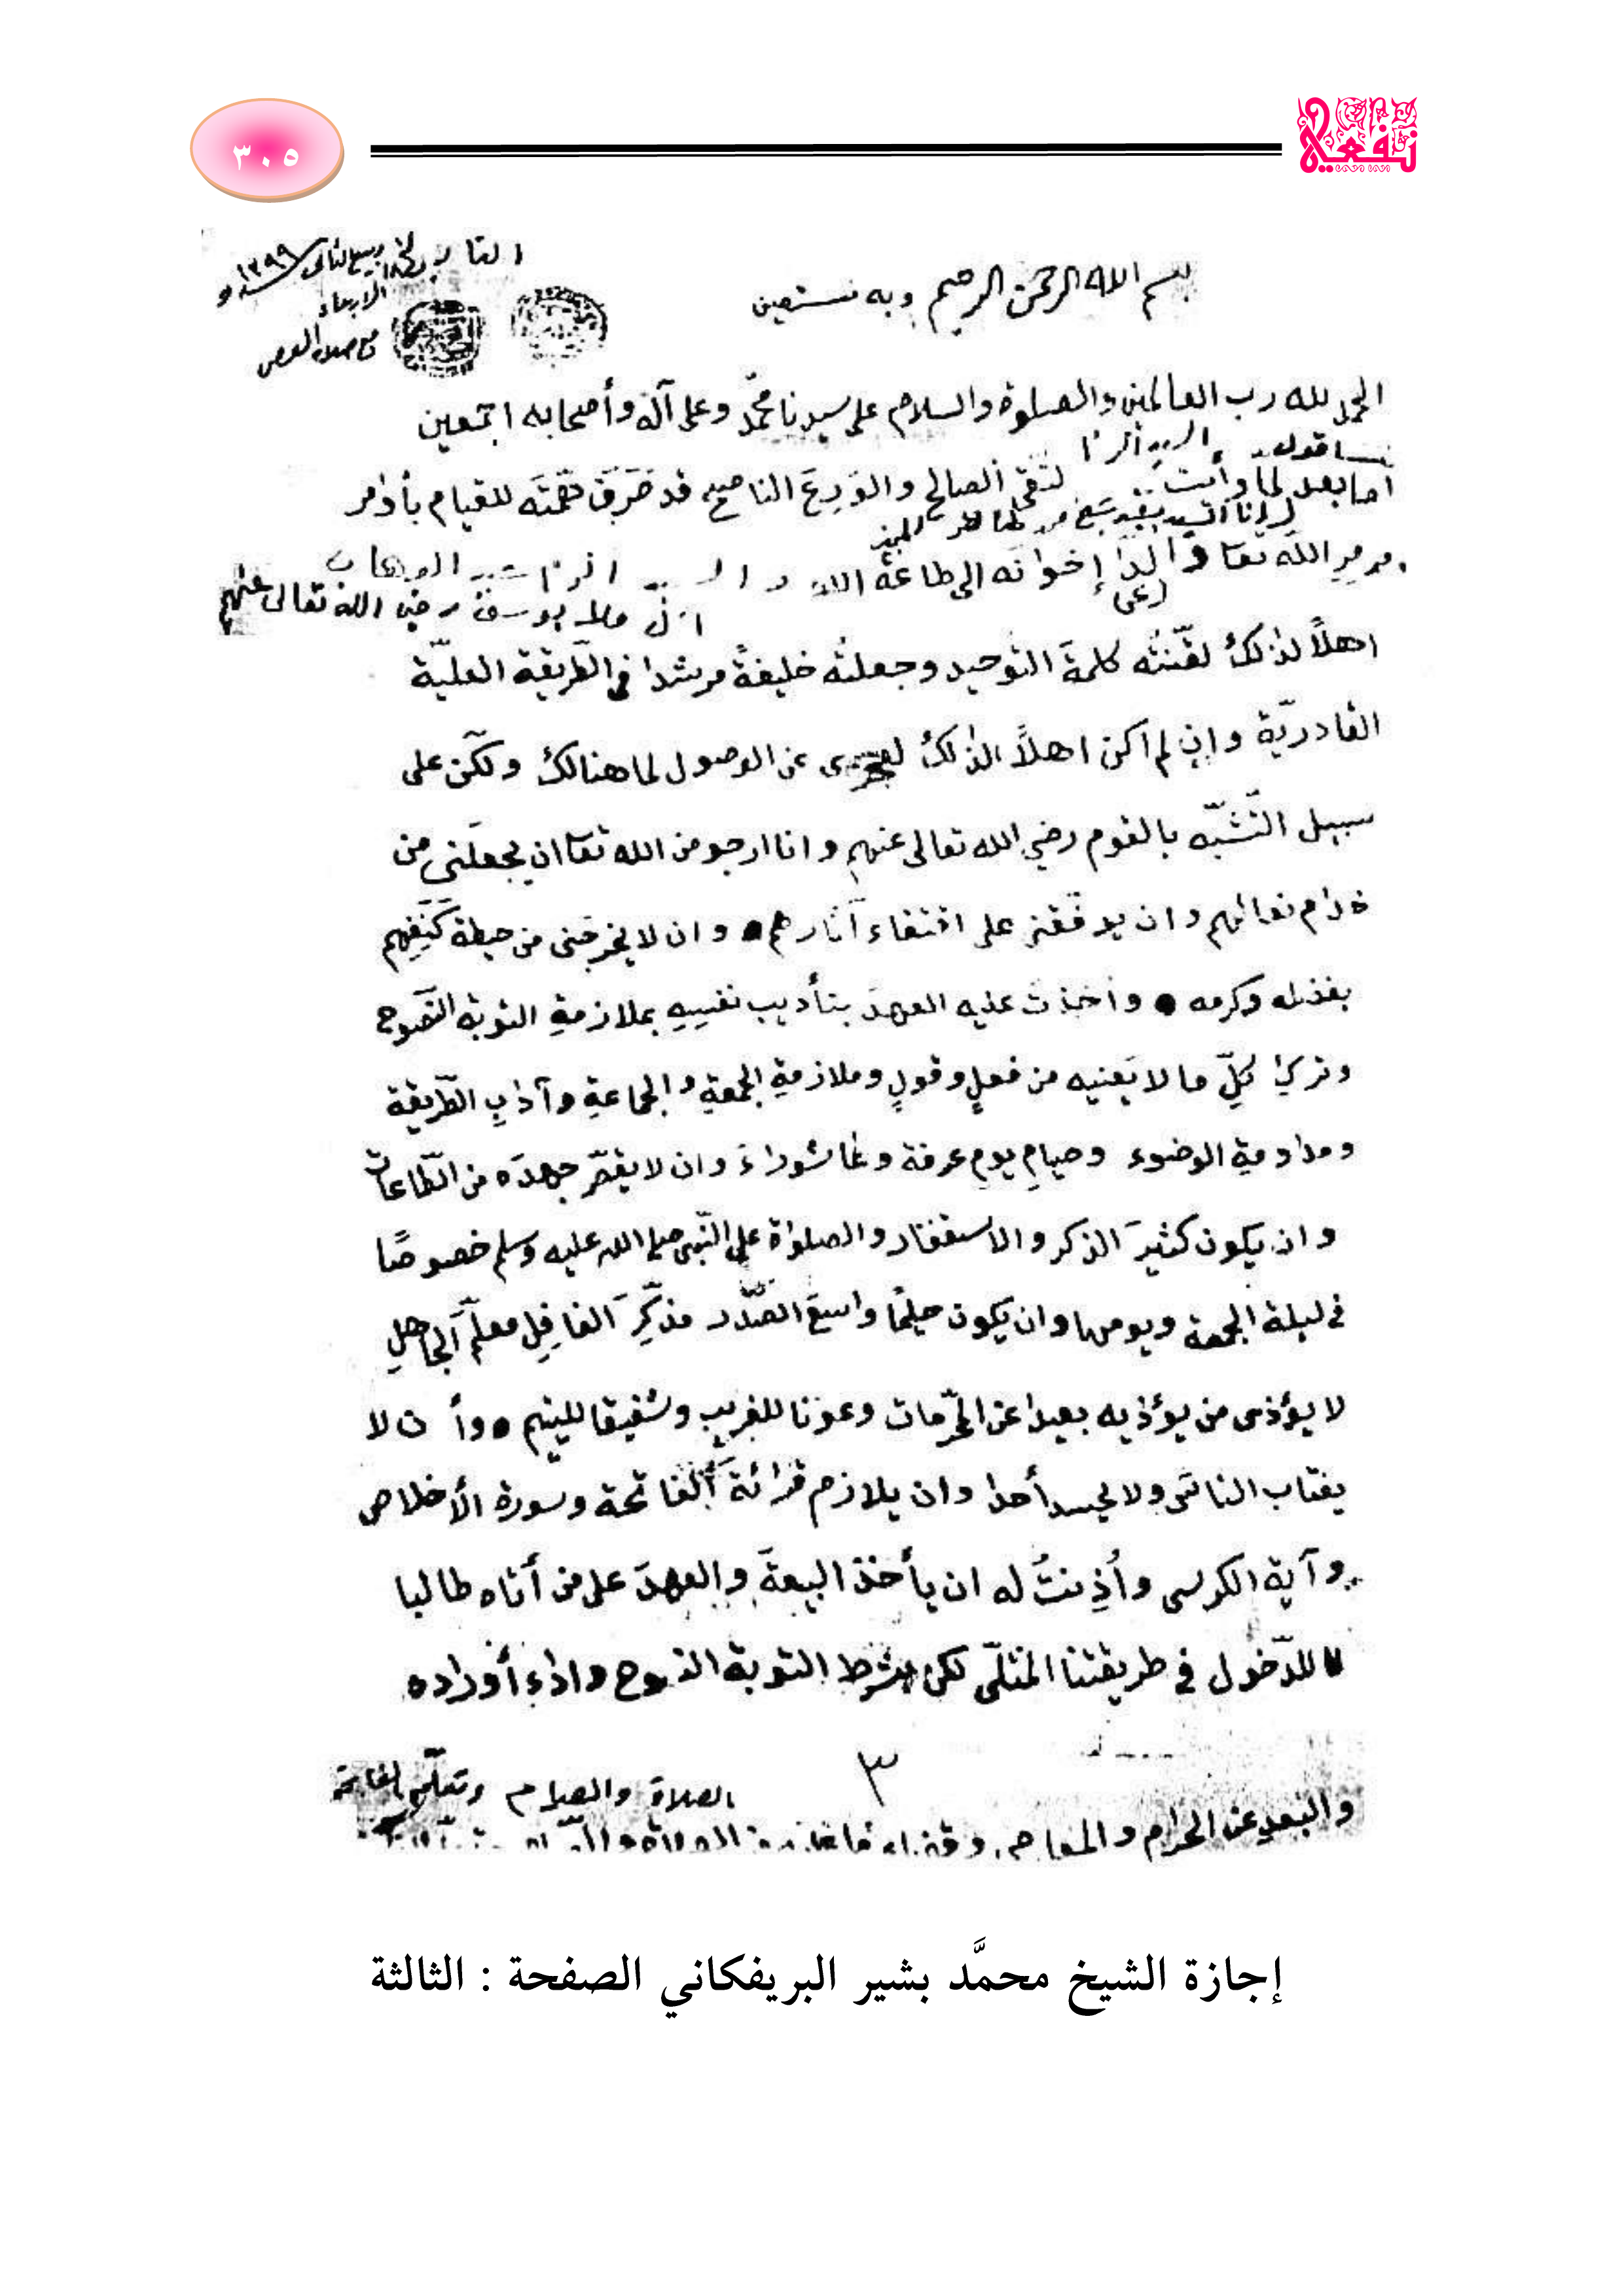 نفعية
٣٠٥
التاريخ ربيع الثاني ١٣٩٩
الاربعاء
مع صلاة العصر
بسم الله الرحمن الرحيم وبه نستعين
الحمد لله رب العالمين والصلوة والسلام على سيدنا محمّد وعلى آله وأصحابه اجمعين
اقول
امابعد لما رأيت لتقي الصالح والوَرِعَ الناصح قد صَرَفَ همَّتَه للقيام بأوامر
الله تعا إخوانَه الى طاعة الله
رضي الله تعالى عنهم
اهلاً لذلك لقّنتُه كلمةَ التوحيد وجعلتُه خليفةً مرشدا في الطّريقة العليّة
القادريّة وإن لم اكن اهلاً لذلك لعجزى عن الوصول لما هنالك ولكّن على
سبيل التّشبّه بالقوم رضي الله تعالى عنهم وانا ارجو من الله تعا ان يجعلَنى من
خدام نعالهم وان يوفّقنى على اقتفاء آثارهم وان لا يخرجَنى من حيطة كَنَفِهم
بفضله وكرمه وأخذتُ عليه العهدَ بتأديب نفسِهِ بملازمةِ التوبة النّصوح
وتركِ كلِّ ما لا يَعنيه من فعلٍ وقولٍ وملازمةِ الجمعةِ والجماعةِ وآدابِ الطّريقة
ومداومةِ الوضوء وصيامِ يومِ عرفة وعاشوراءَ وان لا يقصّر جهدَه من الطّاعات
وان يكون كثيرَ الذكر والاستغفار والصلوة على النّبى صلى الله عليه وسلم خصوصًا
في ليلة الجمعة ويومها وان يكون حليمًا واسِعَ الصّدْر مذكِّرَ الغافِلِ معلّمَ الجاهلِ
لا يؤذى من يؤذيه بعيدا عن المحرّمات وعونا للغريب وشفيقا لليتيم وأن لا
يغتاب الناسَ ولا يحسد أحدا وان يلازم قرائة الفاتحة وسورة الأخلاص
وآية الكرسى وأذِنتُ له ان يأخذ البيعةَ والعهدَ على من أتاه طالبا
للدّخول في طريقتنا المثلّى لكن بشرط التوبة النصوح واداء أوراده
٣
الصلاة والصيام وتعلّم الفاتحة
والبُعدِ عن الحرام والمعاصى وقضاء
إجازة الشيخ محمَّد بشير البريفكاني الصفحة : الثالثة